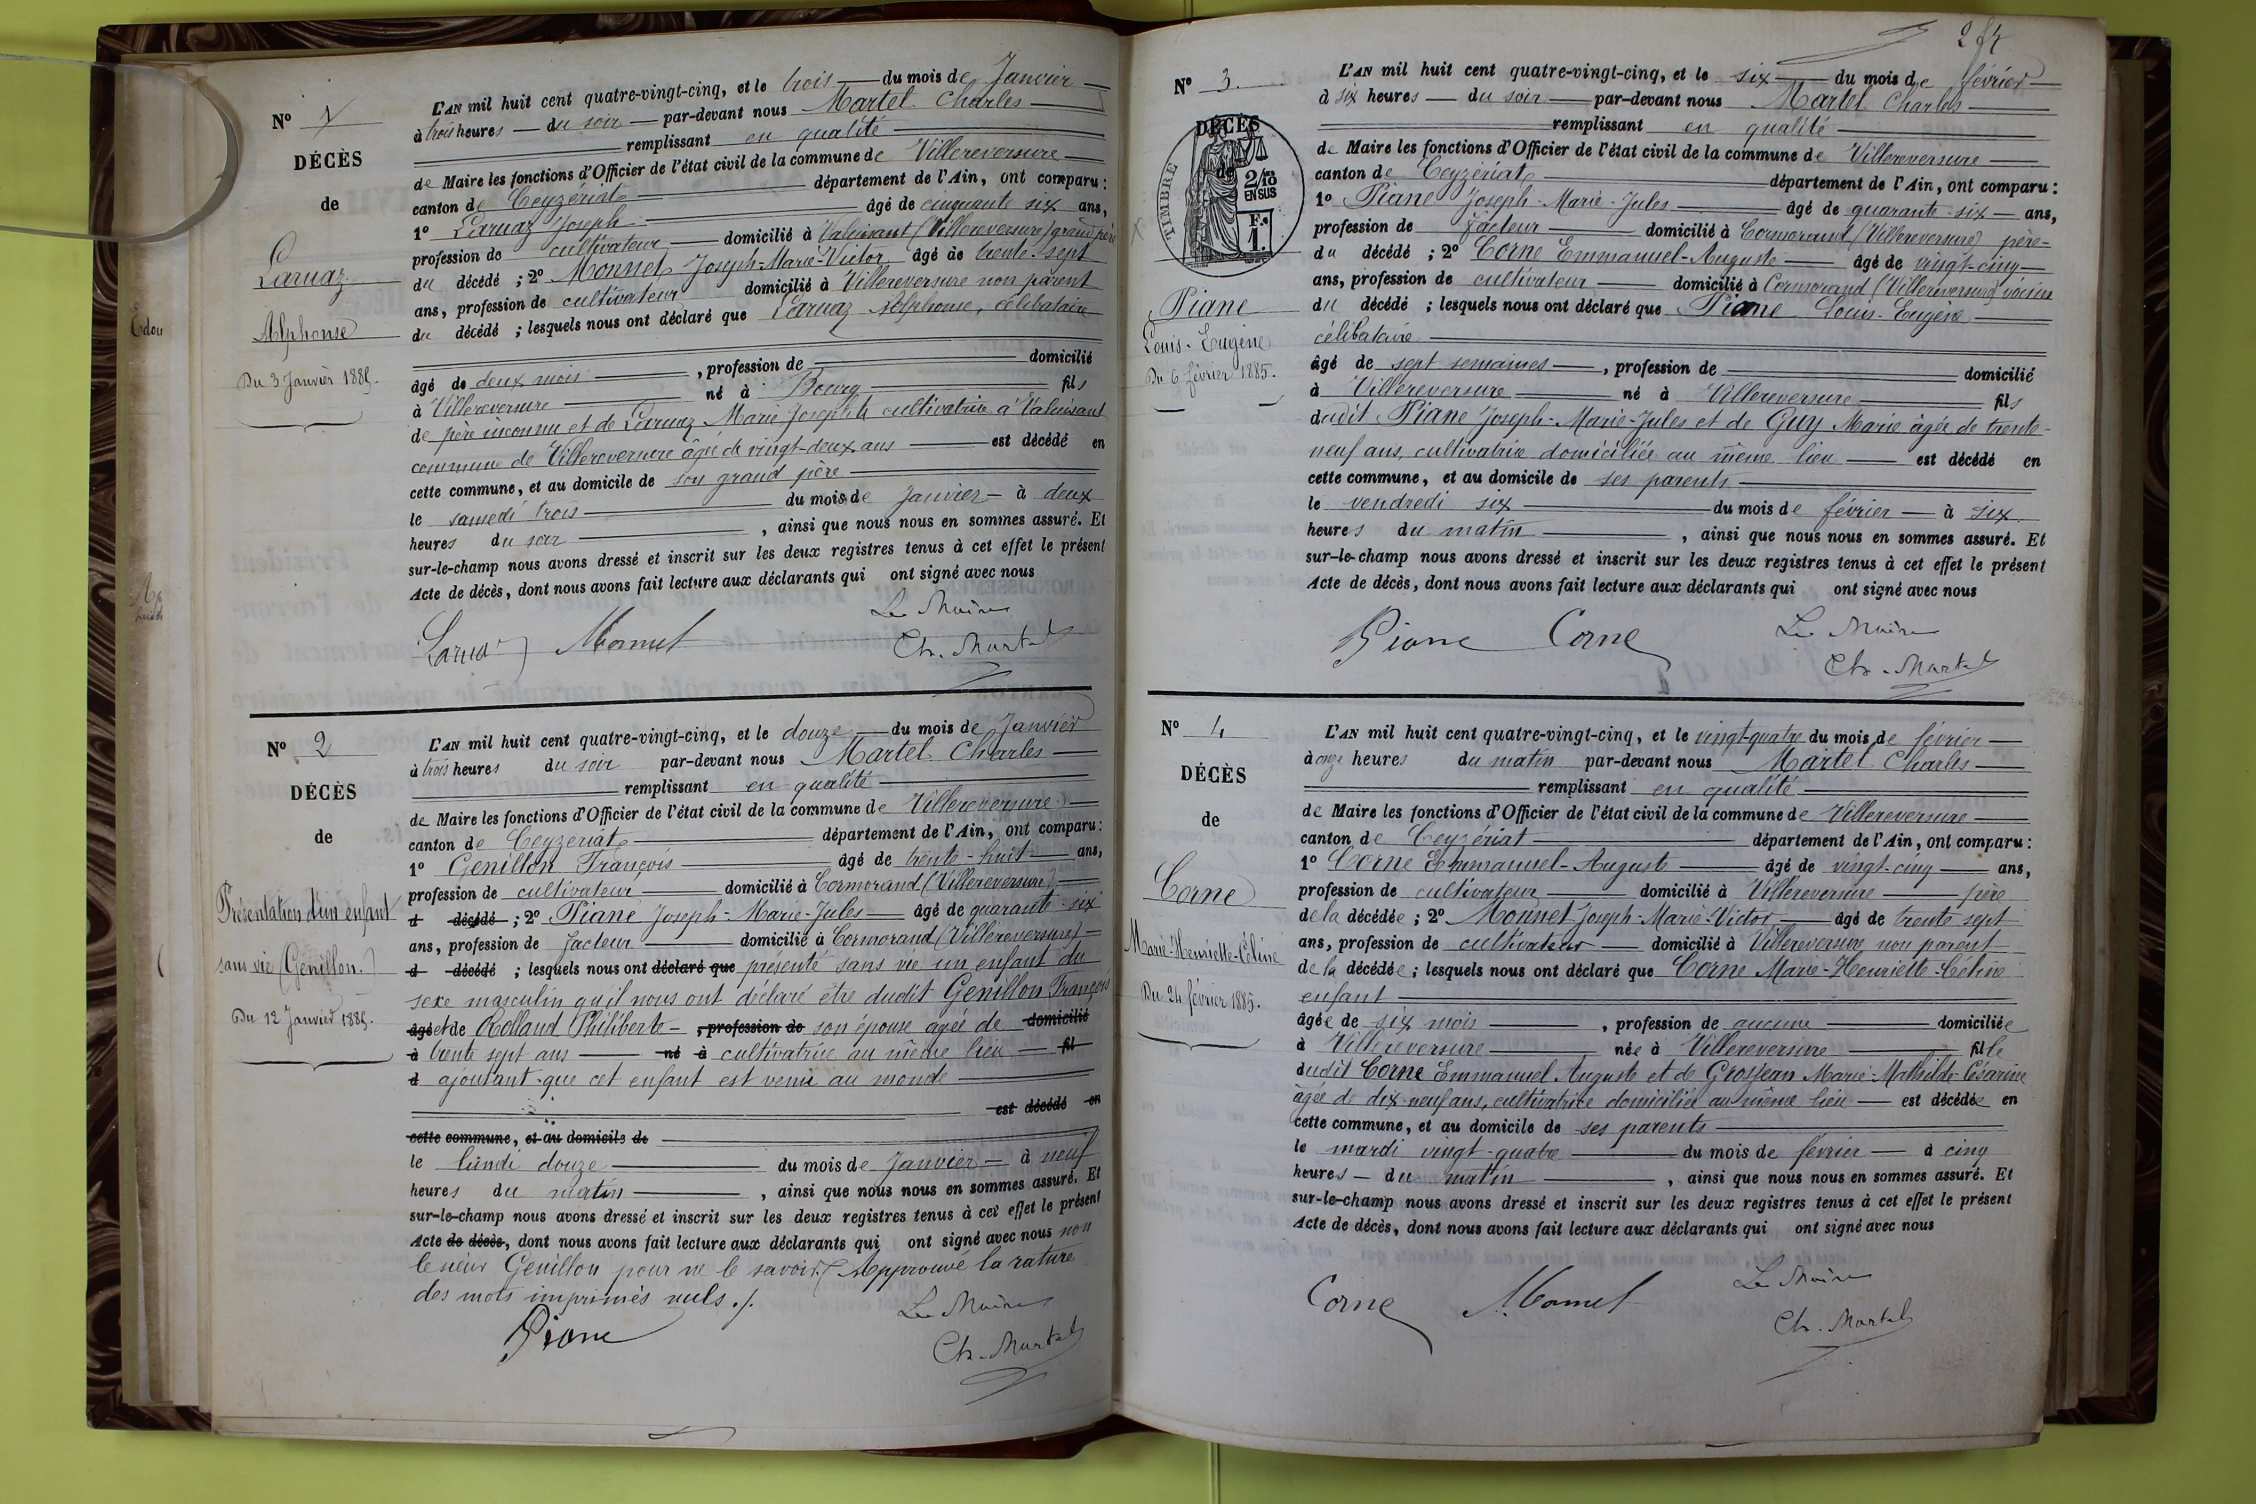 Nº 1
DÉCÈS
de
Larnaz
Alphonse
Du 3 Janvier 1885.
L'AN mil huit cent quatre-vingt-cinq, et le trois du mois de Janvier
à trois heures du soir par-devant nous Martel Charles
remplissant en qualité
de Maire les fonctions d'Officier de l'état civil de la commune de Villereversure
canton de Ceyzériat département de l'Ain, ont comparu :
1º Larnaz Joseph âgé de cinquante six ans,
profession de cultivateur domicilié à Valeissant (Villereversure) grand père
du décédé ; 2º Monnet Joseph-Marie-Victor âgé de trente-sept
ans, profession de cultivateur domicilié à Villereversure non parent
du décédé ; lesquels nous ont déclaré que Larnaz Alphonse, célibataire
âgé de deux mois , profession de domicilié
à Villereversure né à Bourg fils
de père inconnu et de Larnaz Marie Josephte cultivatrice à Valeissant
commune de Villereversure âgée de vingt-deux ans est décédé en
cette commune, et au domicile de son grand père
le samedi trois du mois de Janvier à deux
heures du soir , ainsi que nous nous en sommes assuré. Et
sur-le-champ nous avons dressé et inscrit sur les deux registres tenus à cet effet le présent
Acte de décès, dont nous avons fait lecture aux déclarants qui ont signé avec nous
Larnaz Monnet Le Maire
Ch. Martel
Nº 2
DÉCÈS
de
Présentation d'un enfant
sans vie (Genillon.)
Du 12 Janvier 1885.
L'AN mil huit cent quatre-vingt-cinq, et le douze du mois de Janvier
à trois heures du soir par-devant nous Martel Charles
remplissant en qualité
de Maire les fonctions d'Officier de l'état civil de la commune de Villereversure
canton de Ceyzériat département de l'Ain, ont comparu :
1º Genillon François âgé de trente-huit ans,
profession de cultivateur domicilié à Cormorand (Villereversure)
d décédé ; 2º Piane Joseph-Marie-Jules âgé de quarante-six
ans, profession de facteur domicilié à Cormorand (Villereversure)
d décédé ; lesquels nous ont déclaré que présenté sans vie un enfant du
sexe masculin qu'il nous ont déclaré être dudit Genillon François
âgé et de Rolland Philiberte , profession de son épouse agée de domicilié
à trente sept ans né à cultivatrice au même lieu fil
d ajoutant que cet enfant est venu au monde
est décédé en
cette commune, et au domicile de
le lundi douze du mois de Janvier à neuf
heures du matin , ainsi que nous nous en sommes assuré. Et
sur-le-champ nous avons dressé et inscrit sur les deux registres tenus à cet effet le présent
Acte de décès, dont nous avons fait lecture aux déclarants qui ont signé avec nous non
le sieur Genillon pour ne le savoir. Approuvé la rature
des mots imprimés nuls ./.
Piane Le Maire
Ch. Martel
Nº 3
DÉCÈS
de
TIMBRE
2/10
EN SUS
F.
1.
Piane
Louis-Eugène
Du 6 février 1885.
L'AN mil huit cent quatre-vingt-cinq, et le six du mois de février
à six heures du soir par-devant nous Martel Charles
remplissant en qualité
de Maire les fonctions d'Officier de l'état civil de la commune de Villereversure
canton de Ceyzériat département de l'Ain, ont comparu :
1º Piane Joseph-Marie-Jules âgé de quarante-six ans,
profession de facteur domicilié à Cormorand (Villereversure) père
du décédé ; 2º Corne Emmanuel-Auguste âgé de vingt-cinq
ans, profession de cultivateur domicilié à Cormorand (Villereversure) voisin
du décédé ; lesquels nous ont déclaré que Piane Louis-Eugène
célibataire
âgé de sept semaines , profession de domicilié
à Villereversure né à Villereversure fils
dudit Piane Joseph-Marie-Jules et de Guy Marie âgée de trente-
neuf ans, cultivatrice domiciliée au même lieu est décédé en
cette commune, et au domicile de ses parents
le vendredi six du mois de février à six
heures du matin , ainsi que nous nous en sommes assuré. Et
sur-le-champ nous avons dressé et inscrit sur les deux registres tenus à cet effet le présent
Acte de décès, dont nous avons fait lecture aux déclarants qui ont signé avec nous
Piane Corne Le Maire
Ch. Martel
Nº 4
DÉCÈS
de
Corne
Marie-Henriette-Céline
Du 24 février 1885.
L'AN mil huit cent quatre-vingt-cinq, et le vingt-quatre du mois de février
à onze heures du matin par-devant nous Martel Charles
remplissant en qualité
de Maire les fonctions d'Officier de l'état civil de la commune de Villereversure
canton de Ceyzériat département de l'Ain, ont comparu :
1º Corne Emmanuel-Auguste âgé de vingt-cinq ans,
profession de cultivateur domicilié à Villereversure père
de la décédée ; 2º Monnet Joseph-Marie-Victor âgé de trente sept
ans, profession de cultivateur domicilié à Villereversure non parent
de la décédée ; lesquels nous ont déclaré que Corne Marie-Henriette-Céline
enfant
âgée de six mois , profession de aucune domiciliée
à Villereversure née à Villereversure fille
dudit Corne Emmanuel Auguste et de Grosjean Marie-Mathilde-Césarine
âgée de dix-neuf ans, cultivatrice domiciliée au même lieu est décédée en
cette commune, et au domicile de ses parents
le mardi vingt-quatre du mois de février à cinq
heures du matin , ainsi que nous nous en sommes assuré. Et
sur-le-champ nous avons dressé et inscrit sur les deux registres tenus à cet effet le présent
Acte de décès, dont nous avons fait lecture aux déclarants qui ont signé avec nous
Corne Monnet Le Maire
Ch. Martel